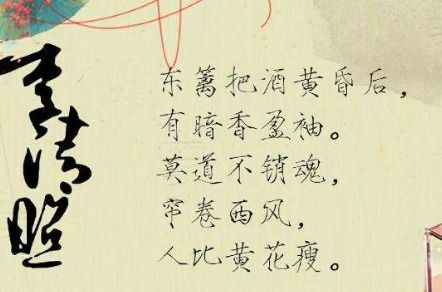 李清照
东篱把酒黄昏后，
有暗香盈袖。
莫道不销魂，
帘卷西风，
人比黄花瘦。